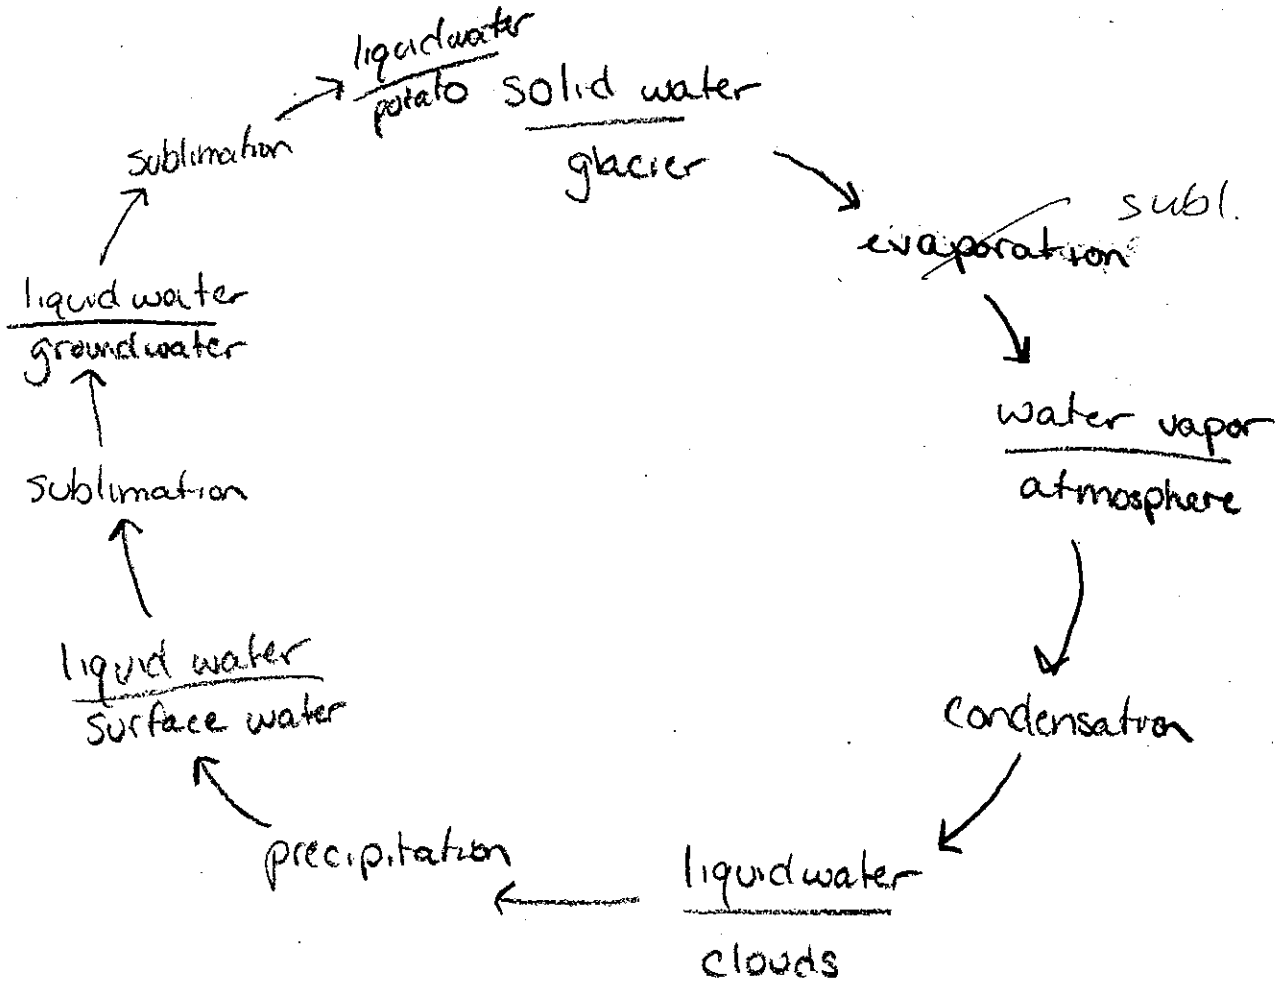 liquid water
potato
solid water
glacier
evaporation
subl.
water vapor
atmosphere
condensation
liquid water
clouds
precipitation
liquid water
surface water
sublimation
liquid water
groundwater
sublimation